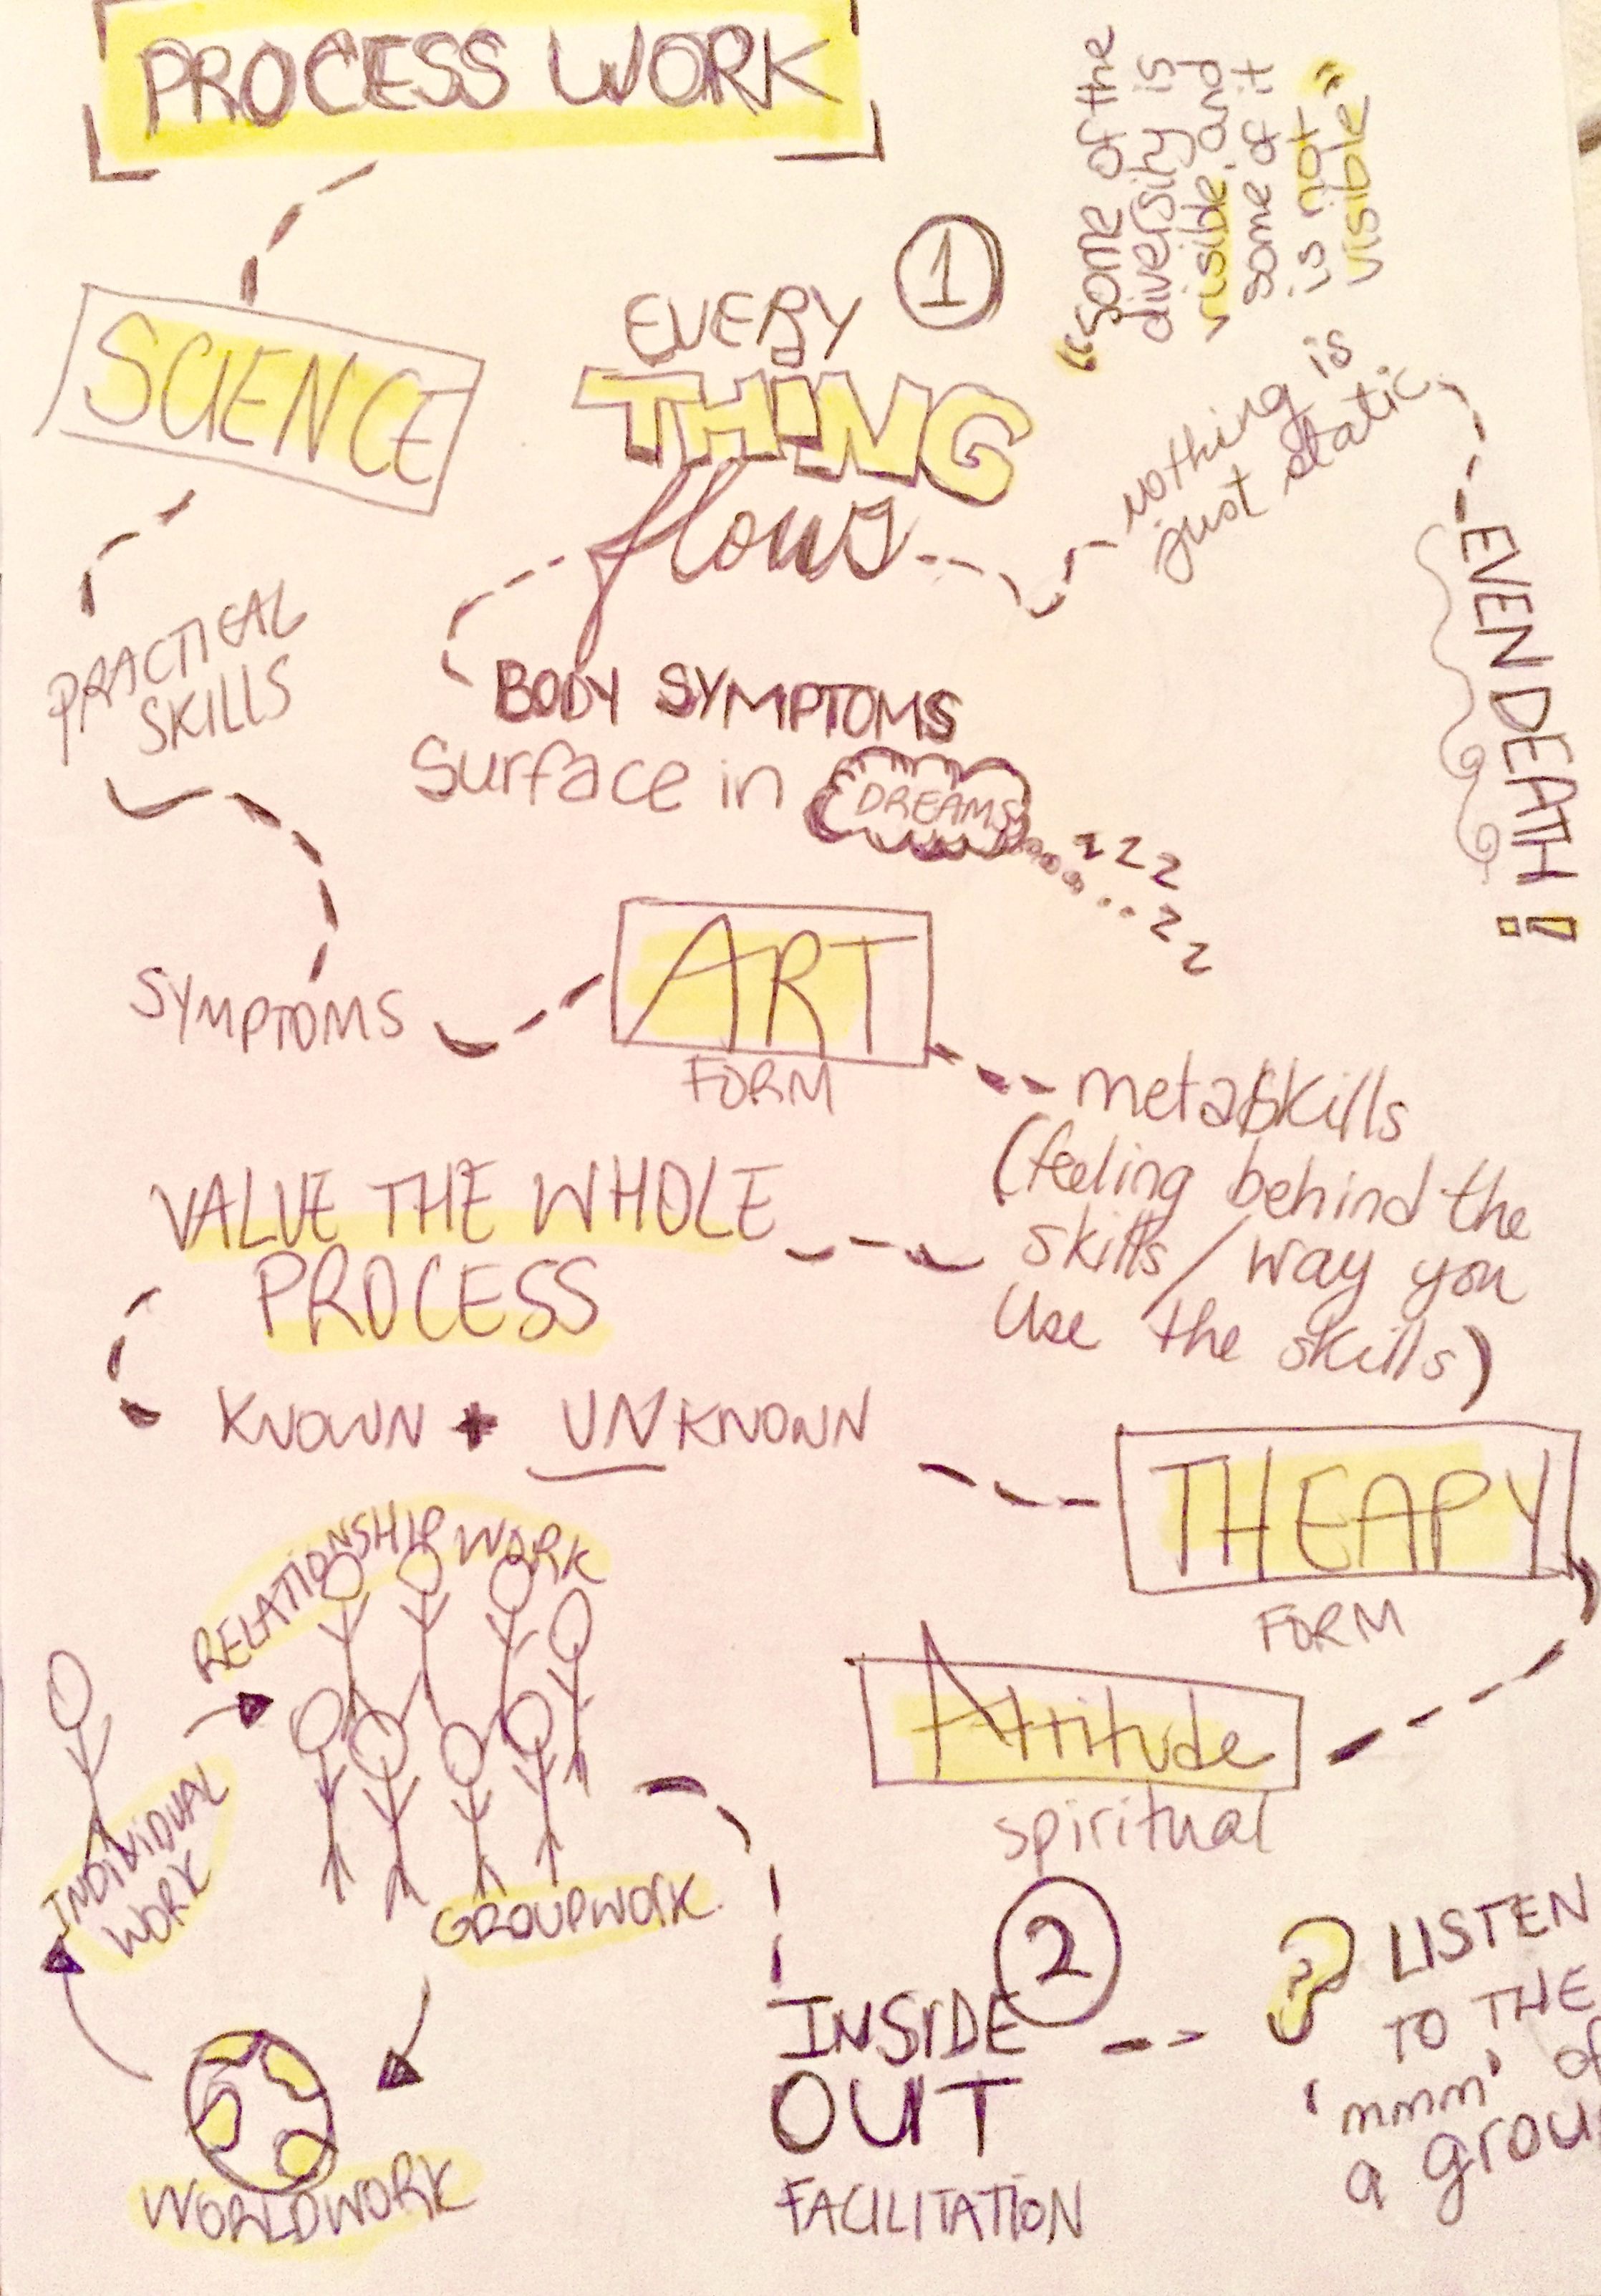 PROCESS WORK
"some of the
diversity is
visible, and
some of it
is not
visible"
SCIENCE
1
EVERY
THING
flows
nothing is
just static
EVEN DEATH!
PRACTICAL
SKILLS
BODY SYMPTOMS
Surface in DREAMS
zzz
zz
SYMPTOMS
ART
FORM
metaskills
(feeling behind the
skills/way you
use the skills)
VALUE THE WHOLE
PROCESS
KNOWN + UNKNOWN
THEAPY
FORM
Attitude
spiritual
RELATIONSHIP WORK
INDIVIDUAL
WORK
GROUPWORK
WORLDWORK
2
INSIDE
OUT
FACILITATION
LISTEN
TO THE
'mmm' of
a grou